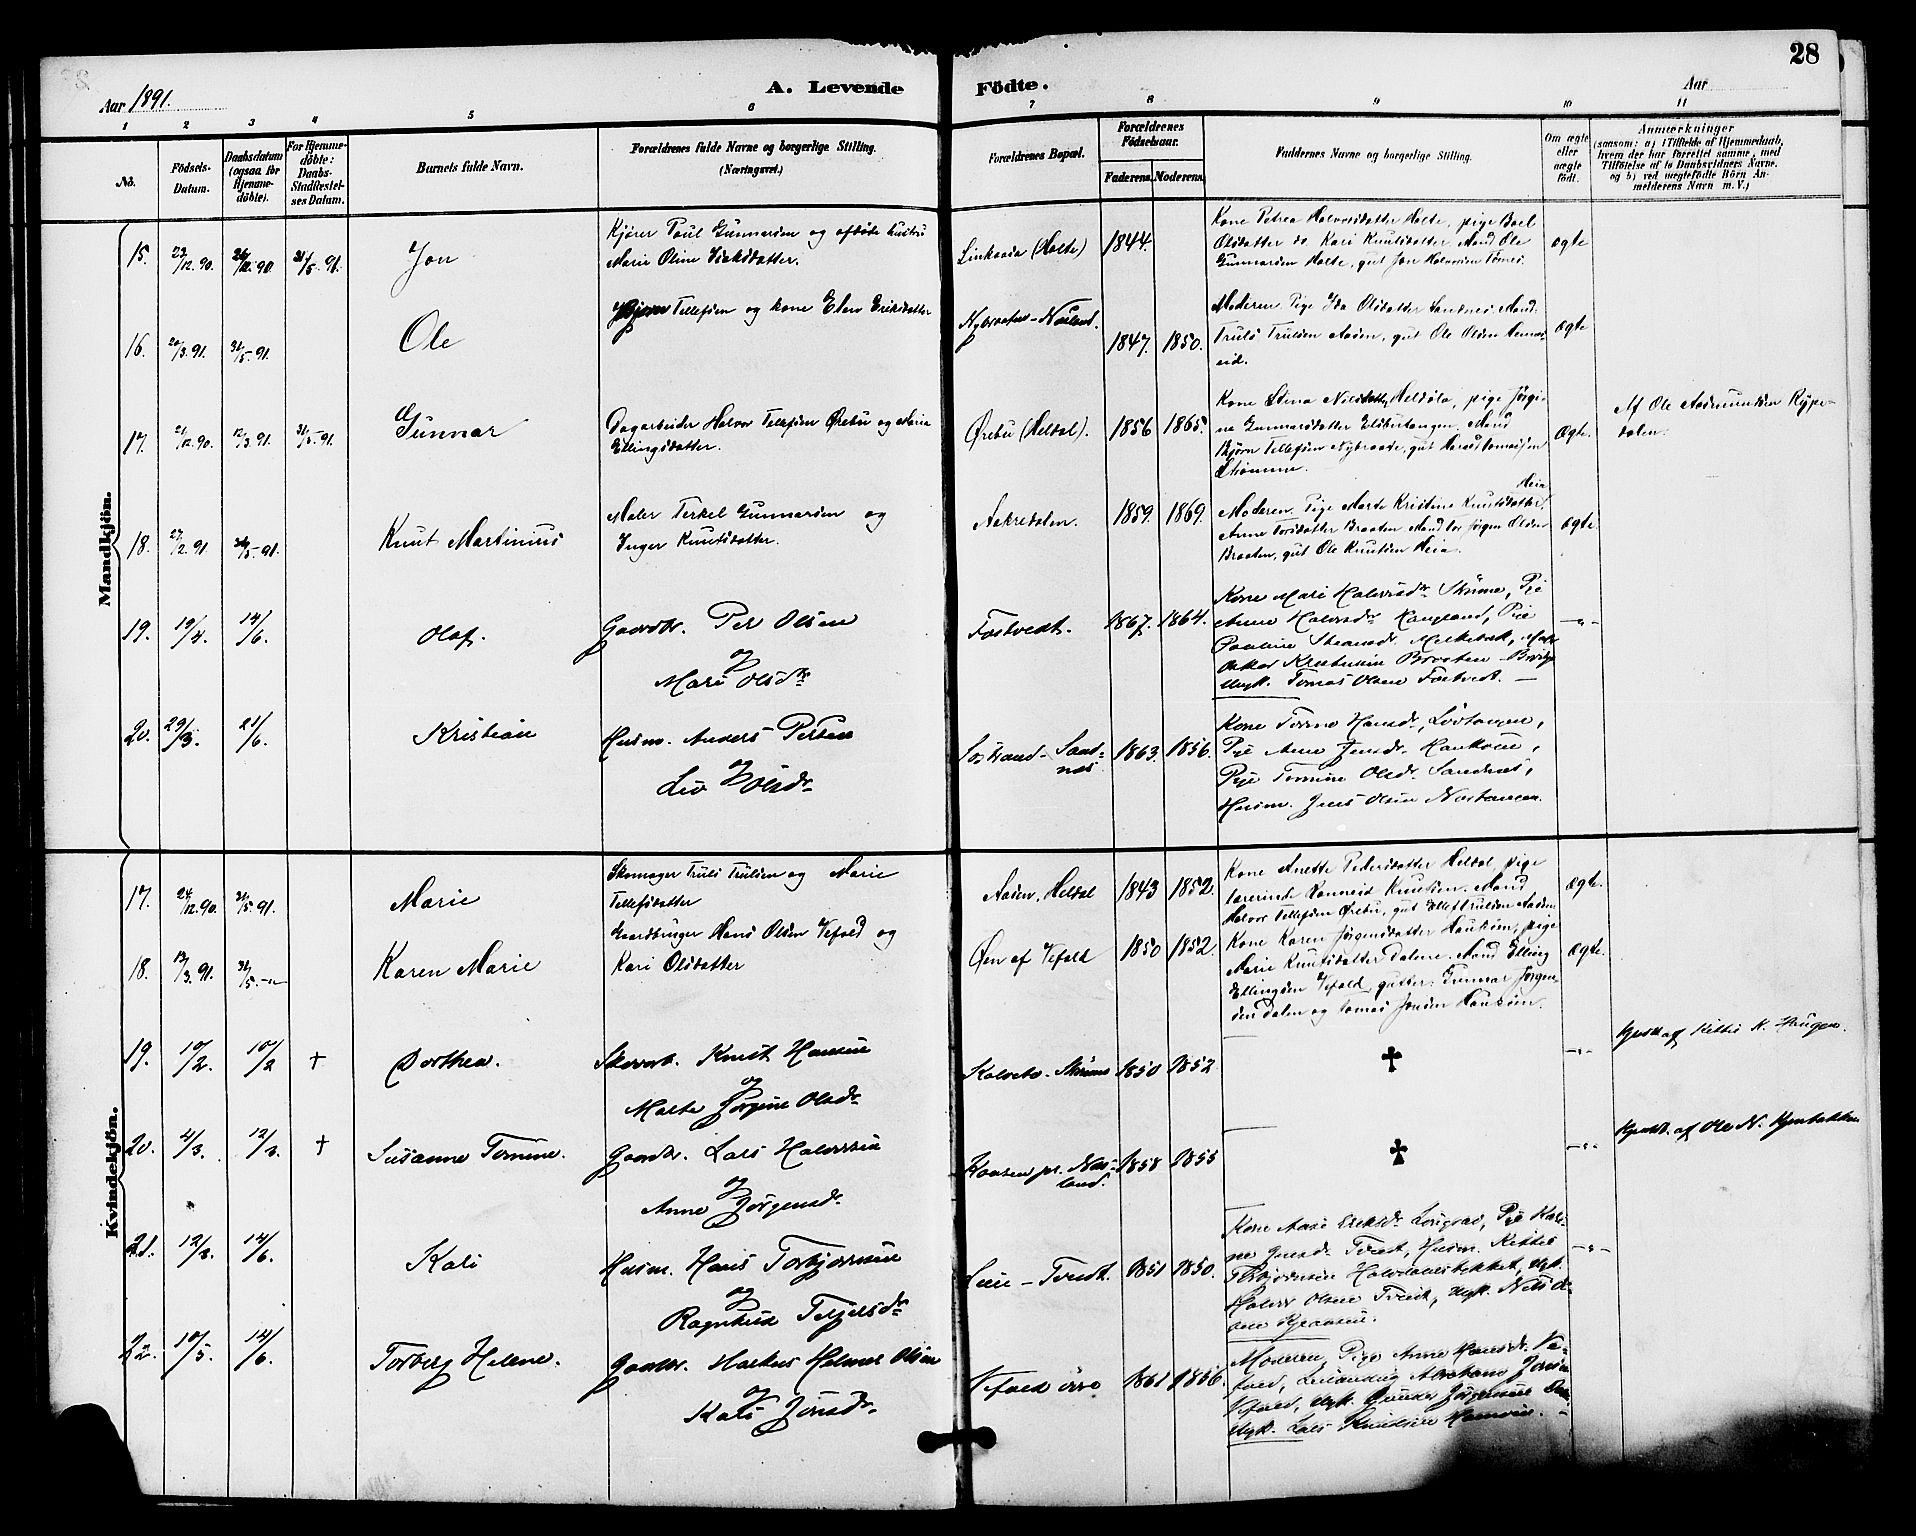 28
Aar 1891.
A. Levende Födte.
Aar
1 2 3 4 5 6 7 8 9 10 11
No.
Födsels-Datum.
Daabsdatum (ogsaa for Hjemmedöbte).
For Hjemmedöbte: Daabs-Stadfæstelses Datum.
Barnets fulde Navn.
Forældrenes fulde Navne og borgerlige Stilling.
(Næringsvei.)
Forældrenes Bopæl.
Forældrenes Födselsaar.
Faderens. Moderens.
Faddernes Navne og borgerlige Stilling.
Om ægte eller uægte födt.
Anmærkninger
(saasom: a) i Tilfælde af Hjemmedaab,
hvem der har forrettet samme, med
Tilföielse af to Daabsvidners Navne.
og b) ved uægtefödte Börn An-
melderens Navn m. V.)
Mandkjön.
15. 23/12.90. 26/12.90 31/5.91. Jon
Kjører Poul Gunnarsen og afdøde hustru
Marie Oline Isaksdatter.
Linkaasa (Holte) 1844.
Kone Petrea Halvorsdatter Holte, pige Boel
Olsdatter do. Kari Knutsdatter, Mand Ole
Gunnarsen Holte, gut Jon Halvorsen Tømes.
ægte
16. 20/3.91. 31/5.91. Ole
Bjørn Tellefsen og kone Elen Eriksdatter
Nybraaten-Næsland. 1847. 1850.
Moderen. Pige Ida Olsdatter Sandnes. Mand.
Truls Trulsen Aasen, gut Ole Olsen
eid.
ægte
17. 21/12.90. 12/3 91. 31/5.91. Gunnar
Dagarbeider Halvor Tellefsen Ørebu og Maria
Ellingsdatter.
Ørebu (Heldal). 1856 1865.
Kone Stina Nilsdatter Heldøla, pige Jørgi-
ne Gunnarsdatter Elsbutangen, Mand
Bjørn Tellefsen Nybraate, gut
Strømme.
Ægte.
Af Ole Aasmundsen Rype-
dalen.
18. 27/2.91 31/5.91. Knut Martinius
Maler Terkel Gunnarsen og
Inger Knutsdatter.
Aakredalen. 1859. 1869.
Heia
Moderen. Pige Marte Kristine Knutsdatter.
Anne Torsdatter Braaten Mand Jørgen Olsen
Braaten, gut Ole Knutsen Heia.
ægte
19. 19/4. 14/6. Olaf.
Gaardbr. Per Olsen
og
Mari Olsdtr
Fostvedt. 1867. 1864.
Kone Mari Halvorsdr. Strøme, Pige
Anne Halvorsdr. Haugland, Pige
Pauline Melkebæk,
Oskar Kristensen Braaten
Ungk. Tomas Olsen Fostvedt.
-"-
20. 29/3. 21/6. Kristian
Husm. Anders Persen
og
Liv Olsdr.
Søstrand-Sand-
nes. 1863. 1856.
Kone Tomine Hansdr. Løvtangen,
Pige Anne Jensdr. Haukom,
Pige Tomine Olsdr. Sandnes,
Husm. Jens Olsen
Kvindekjön.
17. 24/12.90. 31/5.91. Marie
Skomager Truls Trulsen og Marie
Tellefsdatter
Aasen, Heldal 1843 1852.
Kone Anette Pedersdatter Heldal, pige
lærerinde Ranveid Knutsen. Mand
Halvor Tellefsen Ørebu, gut Ellef Trulsen Aasen
ægte.
18. 13/3.91. 31/5.-"- Karen Marie
Gaardbruger Hans Olsen Vefald og
Kari Olsdatter
Øen af Vefald 1850 1852.
Kone Karen Jørgensdatter Haukom, pige
Marie Knutsdatter Dalene. Mand Elling
Ellingsen Vefald, gutter: Gunnar Jørgen-
sen Dalen og Tomas Jonsen Haukom.
Ægte.
19. 10/2. 10/2 † Dorthea.
Skovarb. Knut Hansen
og
Marte Jørgine Olsdr.
Kalveto-Strøme 1850 1852
✝
-"-
Hjemd. af Kittil K. Haugen.
20. 4/3. 12/3. † Susanne Tomine.
Gaardbr. Lars Halvorsen
og
Anne Jørgensdr.
Kaasen pr. Næs-
land. 1858 1855
✝
-"-
Hjemd. af Ole N.
21. 12/3. 14/6. Kari
Husm. Hans Torbjørnsen
og
Ragnhild Terjersdr.
Lien-Tveit. 1851 1850.
Kone Aase Eriksdr. Pige Kari-
ne Jensdr. Tveit, Husm. Kittil
Torbjørnsen Ungk.
Halvor Olsen Tveit, Ungk. Nils
-"-
22. 10/5. 14/6. Torberg Helene.
Gaardbr. Markus Helmer Olsen
og
Kari Jonsdr.
Vefald øvre 1861 1856.
Moderen, Pige Anne Hansdr. Ve-
fald, Abraham Jonsen
Vefald, Ungk. Gunder Jørgensen
Ungk. Lars Knudsen